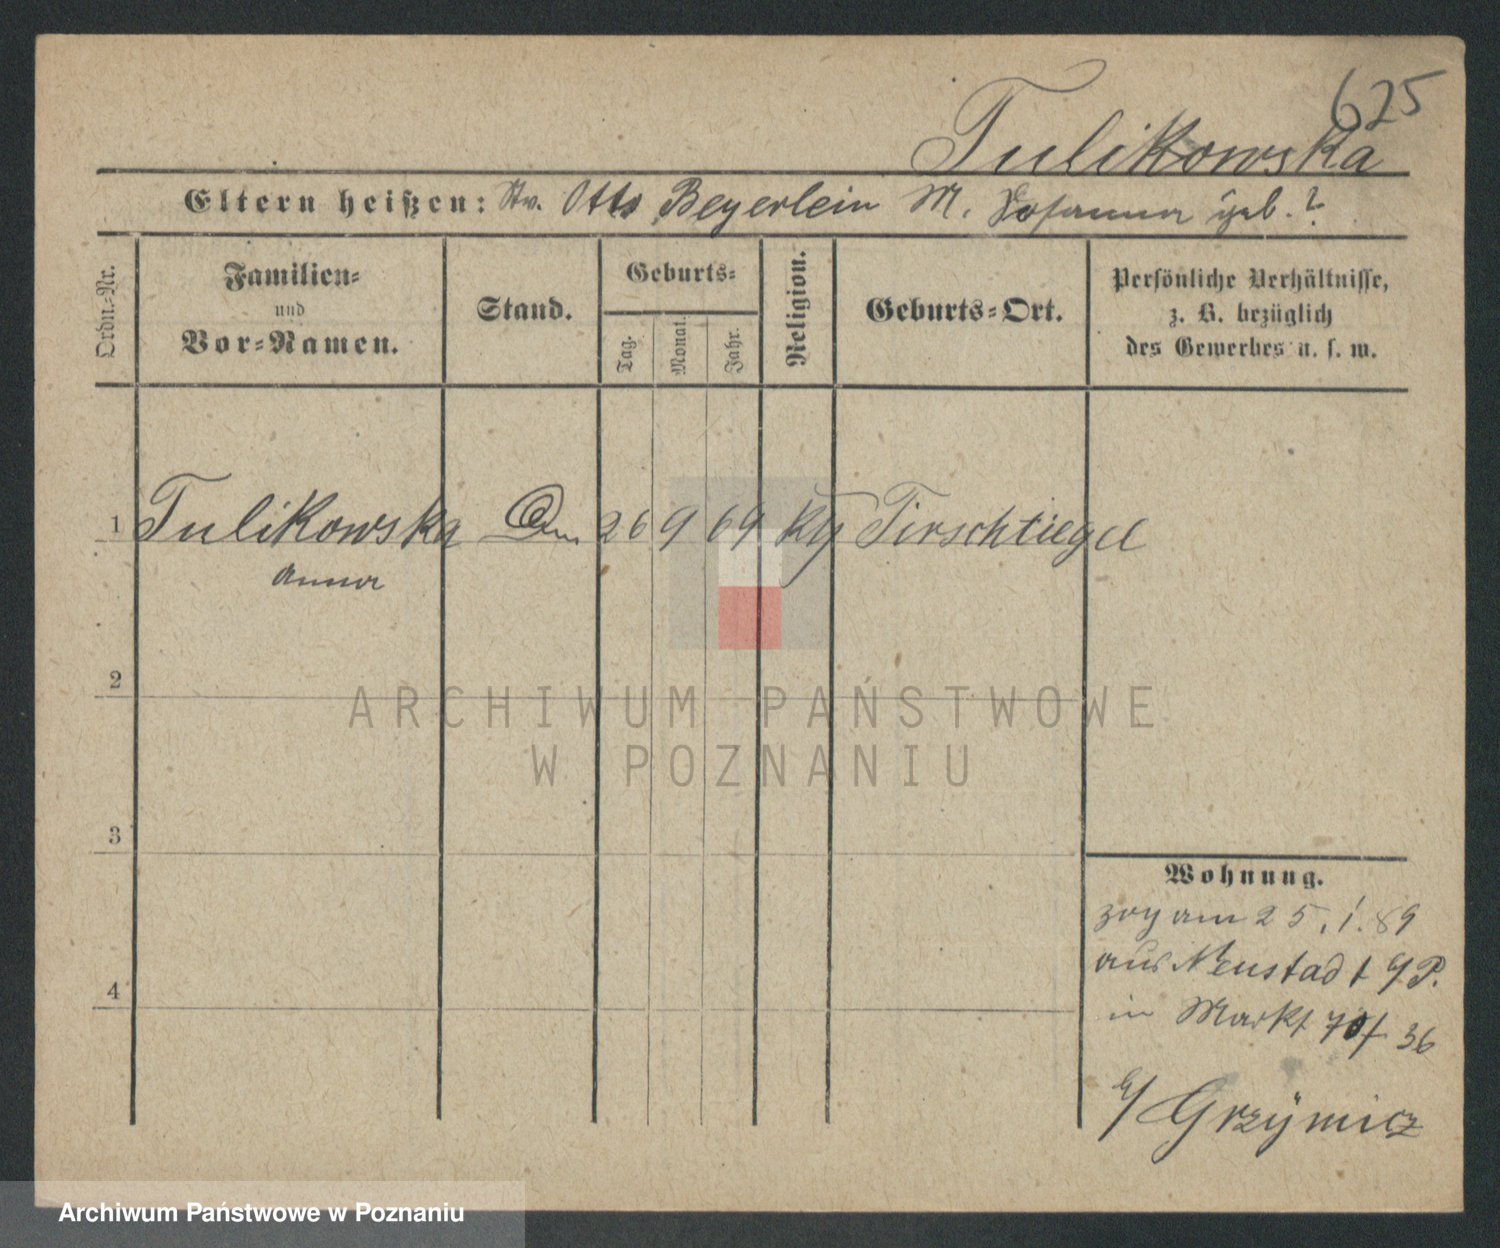 625
Tulikowska
Eltern heißen: Stv. Otto Beyerlein M. Johanna geb. ?
Ordn.-Nr.
Familien- und Vor-Namen.
Stand.
Geburts-
Tag.
Monat.
Jahr.
Religion.
Geburts-Ort.
Persönliche Verhältnisse,
z. B. bezüglich
des Gewerbes u. s. w.
1 Tulikowska 26 9 69 Tirschtiegel
Anna
2
ARCHIWUM PAŃSTWOWE
W POZNANIU
3
Wohnung.
zog am 25. 1. 89
aus Neustadt P.
4
in Markt 36
Grzymicz
Archiwum Państwowe w Poznaniu